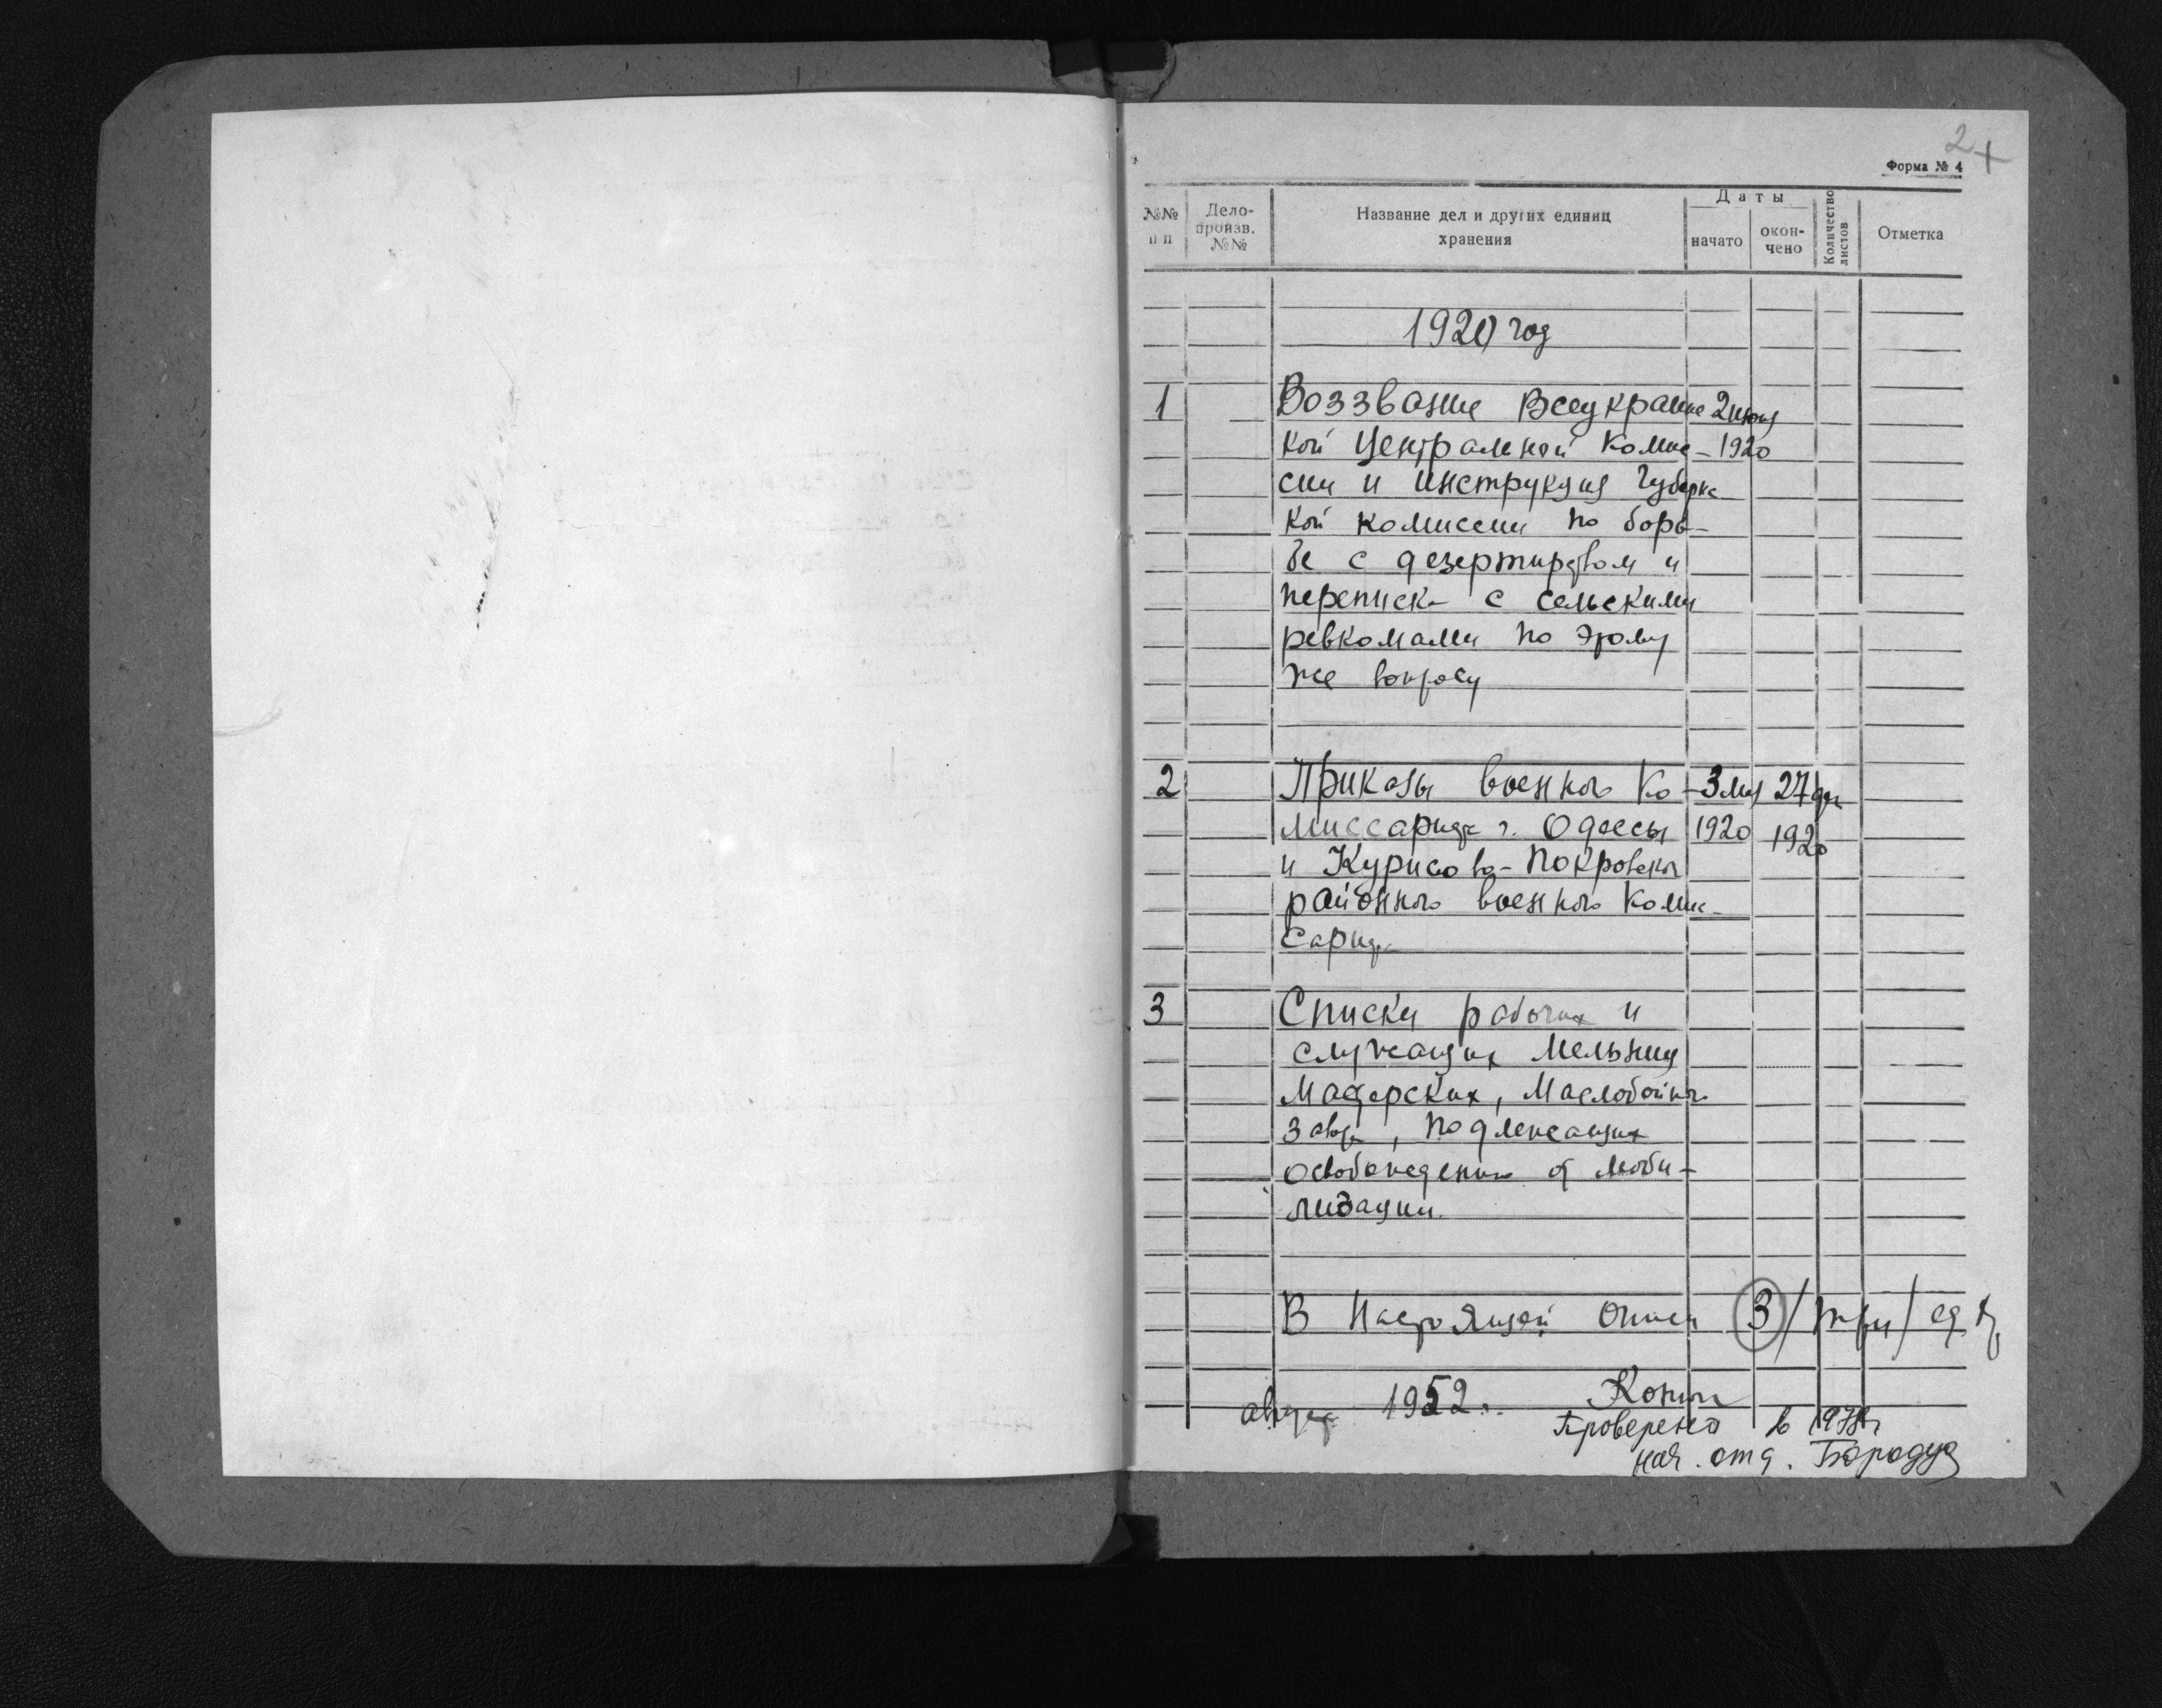 2
Форма № 4
№№ п п
Дело-произв. №№
Название дел и других единиц хранения
Даты
начато
окончено
Количество листов
Отметка
1920 год
1 Воззвание Всеукраинс 2 июня
кой Центральной Комис- 1920
сии и инструкция Губернс
кой комиссии по борь-
бе с дезертирством и
переписка с сельскими
ревкомами по этому
же вопросу
2 Приказы военного Ко- 3 мая 27 дек
миссариата г. Одессы 1920 1920
и Курисово-Покровского
районного военного комис-
сариата
3 Списки рабочих и
служащих мельниц
мастерских, маслобойного
завода, подлежащих
освобождению от моби-
лизации.
В настоящей описи 3 /три/ ед хр
август 1952 г.
Проверено в
нач. отд.